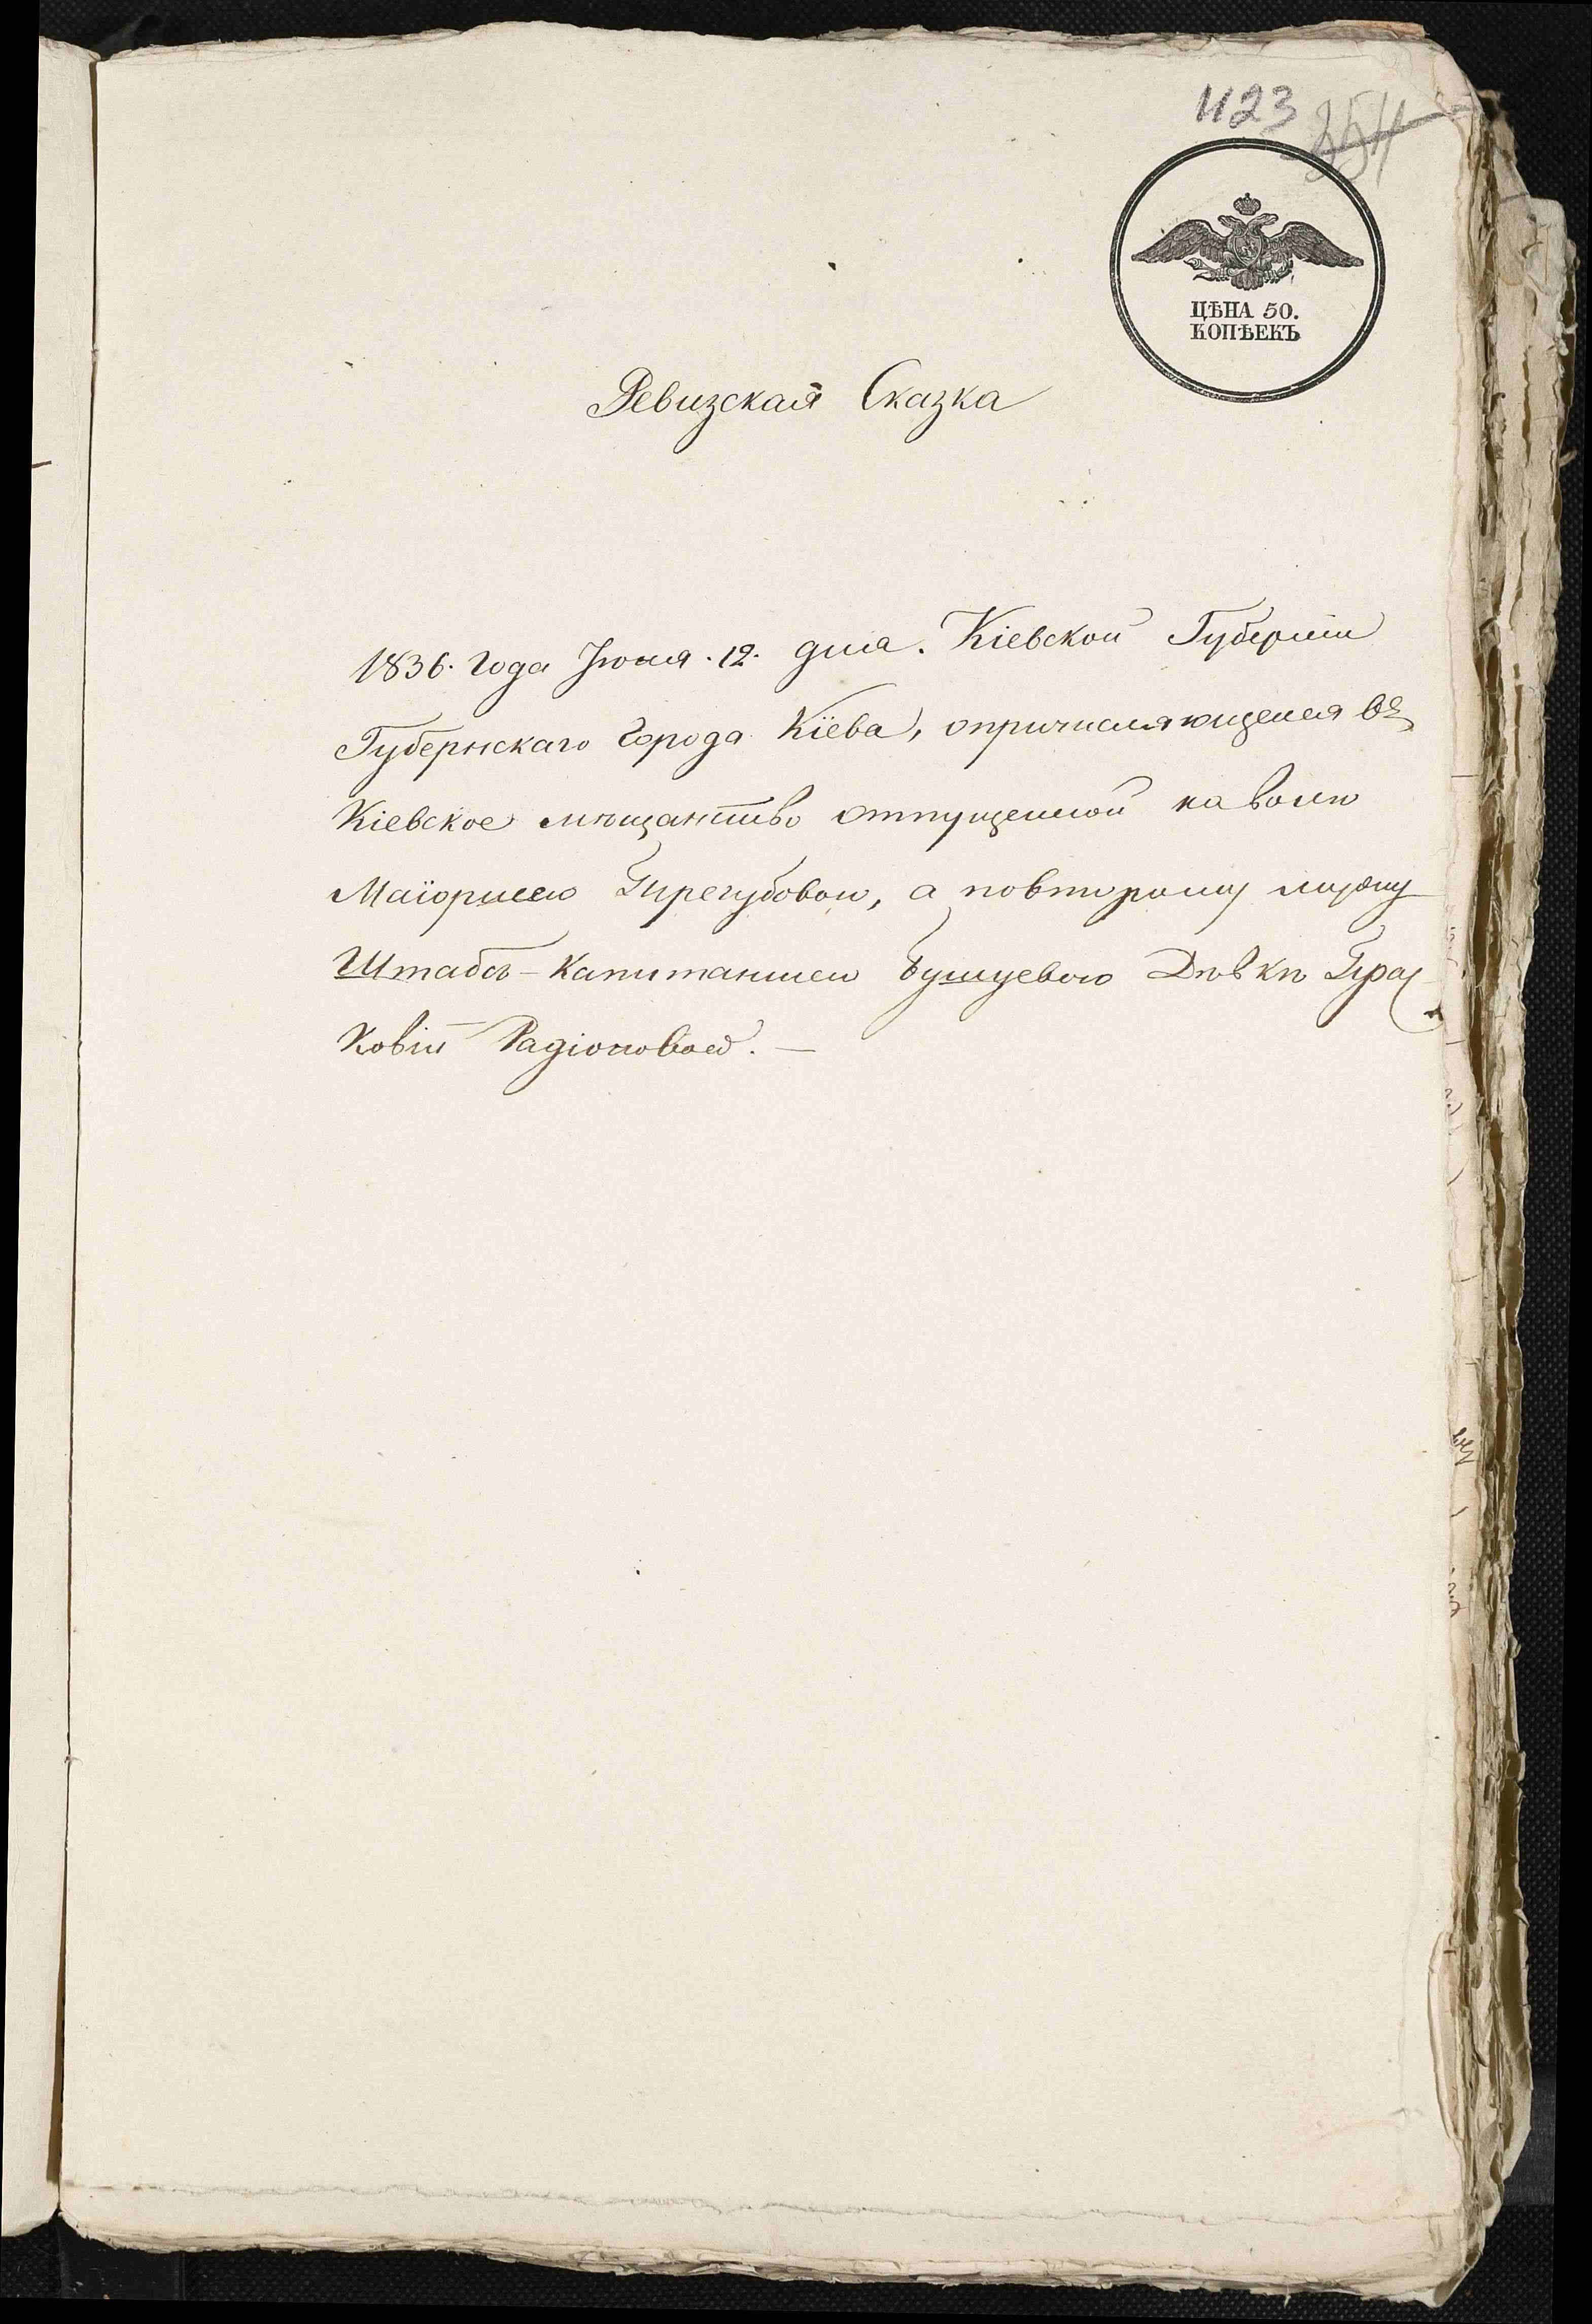 1123 354
ЦѢНА 50.
КОПѢЕКЪ
Ревизская Сказка
1836. Года Іюня. 12. дня. Кіевской Губерніи
Губернскаго Города Кіева, опричисляющемся въ
Кіевское мѣщанство отпущенной на волю
Маіоршею Трегубовою, а повторому мужу
Штабсъ-Капитаншею Бушуевою Дѣвкѣ Прас
ковіи Радіоновой. —